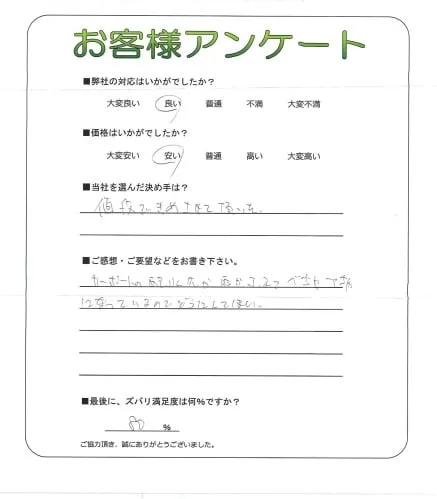 お客様アンケート
■弊社の対応はいかがでしたか?
大変良い 良い 普通 不満 大変不満
■価格はいかがでしたか?
大変安い 安い 普通 高い 大変高い
■当社を選んだ決め手は?
値段できめさせて頂いた。
■ご感想・ご要望などをお書き下さい。
カーポートの
になっているのでどうにかしてほしい。
■最後に、ズバリ満足度は何%ですか?
80 %
ご協力頂き、誠にありがとうございました。